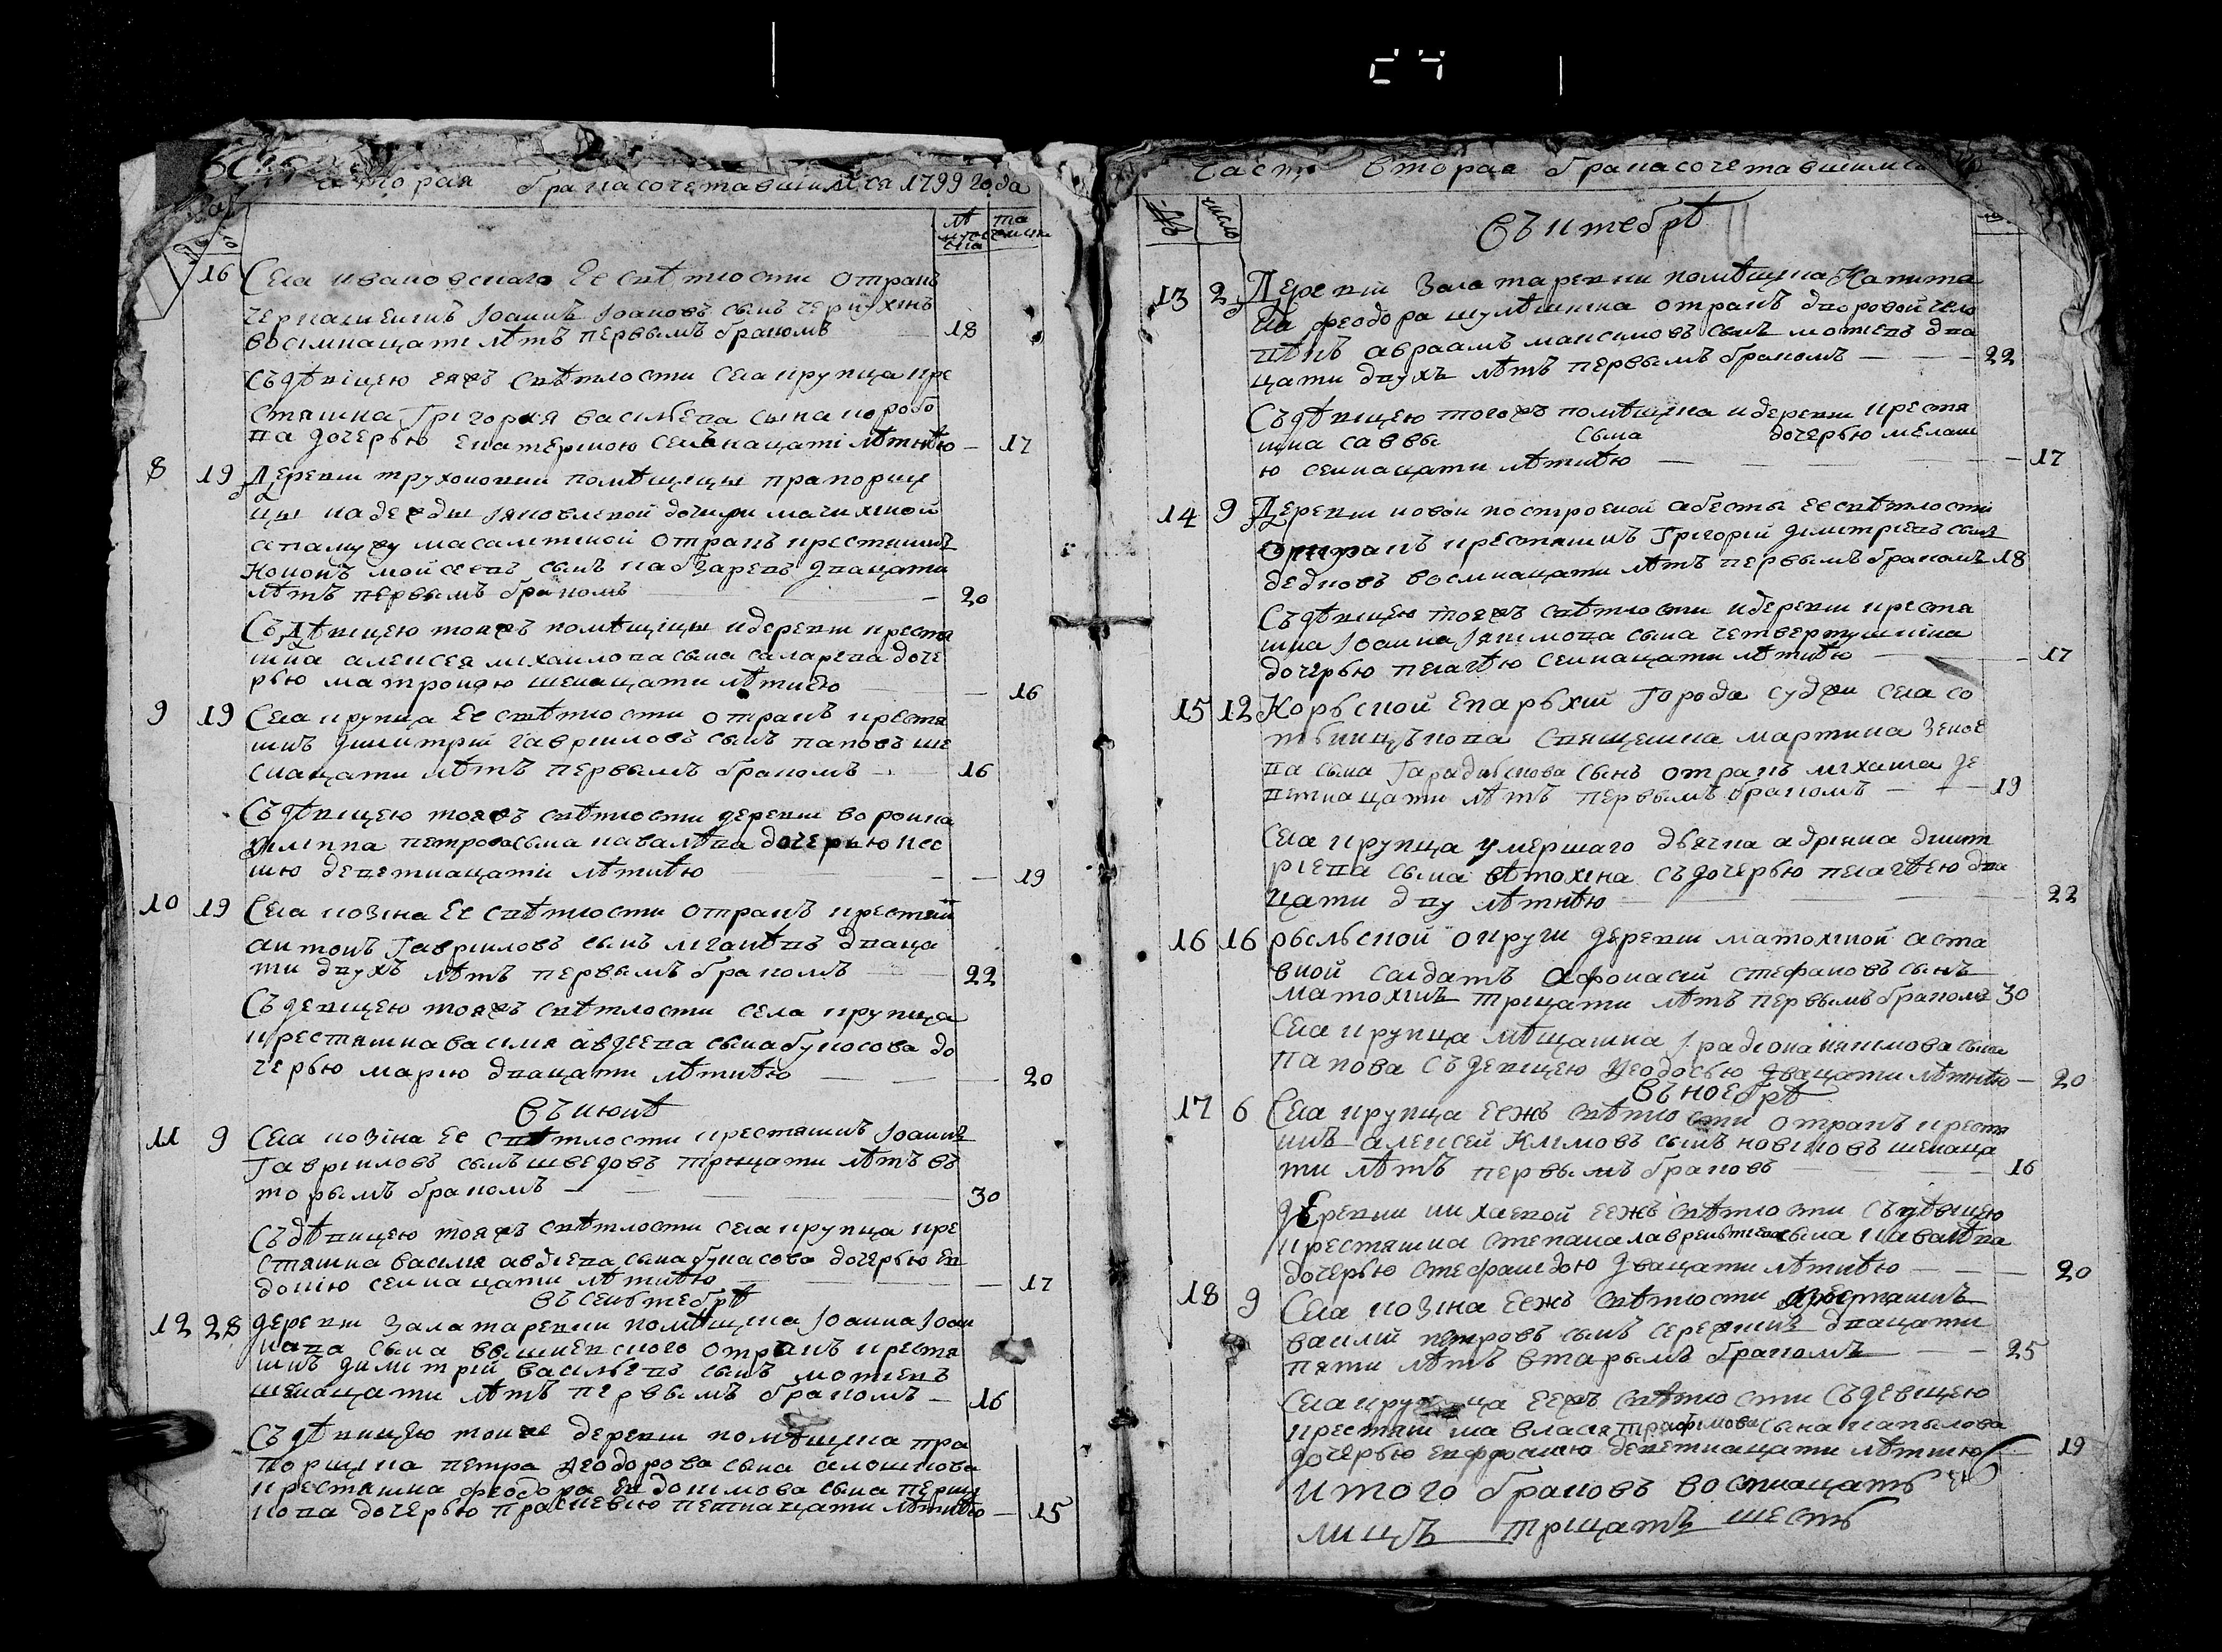 вторая бракасочетавшимся 1799 года
лѣ та
16 Села ивановскаго Ее свѣтлости отракъ
черкашенинъ Iоаннъ Iоановъ сынъ
восимнацати лѣтъ первымъ бракомъ 18
Съ дѣвицею еяжъ свѣтлости села крупца кре
стянина Григория василева сына коробо
ва дочерью екатериною семънацати лѣтнѣю 17
8 19 Деревни труховки помѣщицы прапорщи
цы надежды
отракъ крестянинъ
Кононъ мойсеевъ сынъ двацати
лѣтъ первымъ бракомъ 20
Съ дѣвицею тояжъ помѣщицы идеревни крестя
нина алексея михаилова сына дочe
рью матроною шеснацати лѣтнею 16
9 19 Села крупца Ее свѣтлости отракъ крестя
нинъ димитрий гавриловъ сынъ паповъ ше
снацати лѣтъ первымъ бракомъ 16
Съ дѣвицею тояжъ свѣтлости деревни воронка
филиппа петрова сына кавалѣва дочерью ксе
нию деветнацати лѣтнѣю 19
10 19 Села козина Ее свѣтлости отракъ крестяни
антонъ Гавриловъ сынъ двaца
ти двухъ лѣтъ первымъ бракомъ 22
Съ девицею тояжъ свѣтлости села крупца
крестянина василя авдеева сына букосова до
черью марию двацати лѣтнѣю 20
Въ июнѣ
11 9 Села козина Ее свѣтлости крестянинъ Iоаннъ
Гавриловъ сынъ шведовъ трицати лѣтъ въ
торымъ бракомъ 30
Съ дѣвицею тояжъ свѣтлости села крупца кре
стянина василя авдiева сына букасова дочерью ев
докию семнацати лѣтнѣю 17
Въ сентебрѣ
12 28 Деревни Залатаревки помѣщика Iоанна Iоан
нава сына вышневского отракъ крестя
нинъ димитрий василевъ сынъ мотiевъ
шеснацати лѣтъ первымъ бракомъ 16
Съ дѣвицею тояже деревни помѣщика пра
порщика петра феодорова сына алошкова
крестянина феодора евдокимова сына
дочерью прасковию петнацати лѣтнѣю 15
Часть вторая бракасочетавшимся
число
Въ октебрѣ
13 2 Деревни Залатаревки помѣщика Капита
на феодора шулѣшкина отракъ дворовой чело
вѣкъ авраамъ максимовъ сынъ мотѣевъ два
цати двухъ лѣтъ первымъ бракомъ 22
Съ дѣвицею тогожъ помѣщика идеревни крестя
нина саввы сына дочерью мелани
ю семнацати лѣтнѣю 17
14 9 Деревни новои построеной Ее свѣтлости
отракъ крестянинъ Григорий димитриевъ сынъ
дедковъ восмнацати лѣтъ первымъ бракомъ 18
Съ дѣвицею тояжъ свѣтлости идеревни крестя
нина Iоанна Iякимова сына
дочерью пелагѣю семнацати лѣтнѣю 17
15 12 Корьской епархии Города суджи села со
священика мартина
сына сынъ отракъ михаила де
ветнацати лѣтъ первымъ бракомъ 19
Села крупца умершаго дьячка адрiяна димит
риева сына вѣтохина съ дочерью пелагѣею два
цати дву лѣтнѣю 22
16 16 рыльской округи деревни матохиной аста
вной салдатъ афонасий стефановъ сынъ
матохинъ трицати лѣтъ первымъ бракомъ 30
Села крупца мѣщанина iрадiона якимова сына
папова съ девицею феодосью двацати лѣтнѣю 20
въ ноебрѣ
17 6 Села крупца Ееже свѣтлости отракъ крестя
нинъ алексей Климовъ сынъ новиковъ шеснаца
ти лѣтъ первымъ браковъ 16
деревни михаевой ееже свѣтлости съ дѣвицею
крестянина степана лаврентиева сына кавалѣва
дочерью стефанидою двацати лѣтнѣю 20
18 9 Села козина Ееже свѣтлости крестянинъ
василий петровъ сынъ двацати
пяти лѣтъ втарымъ бракомъ 25
Села крупца Еежъ свѣтлости съ девицею
крестянина власа трафимова сына капылова
дочерью евфросинию деветнацати лѣтнию 19
итого браковъ восмнацать
лицъ трицать шесть